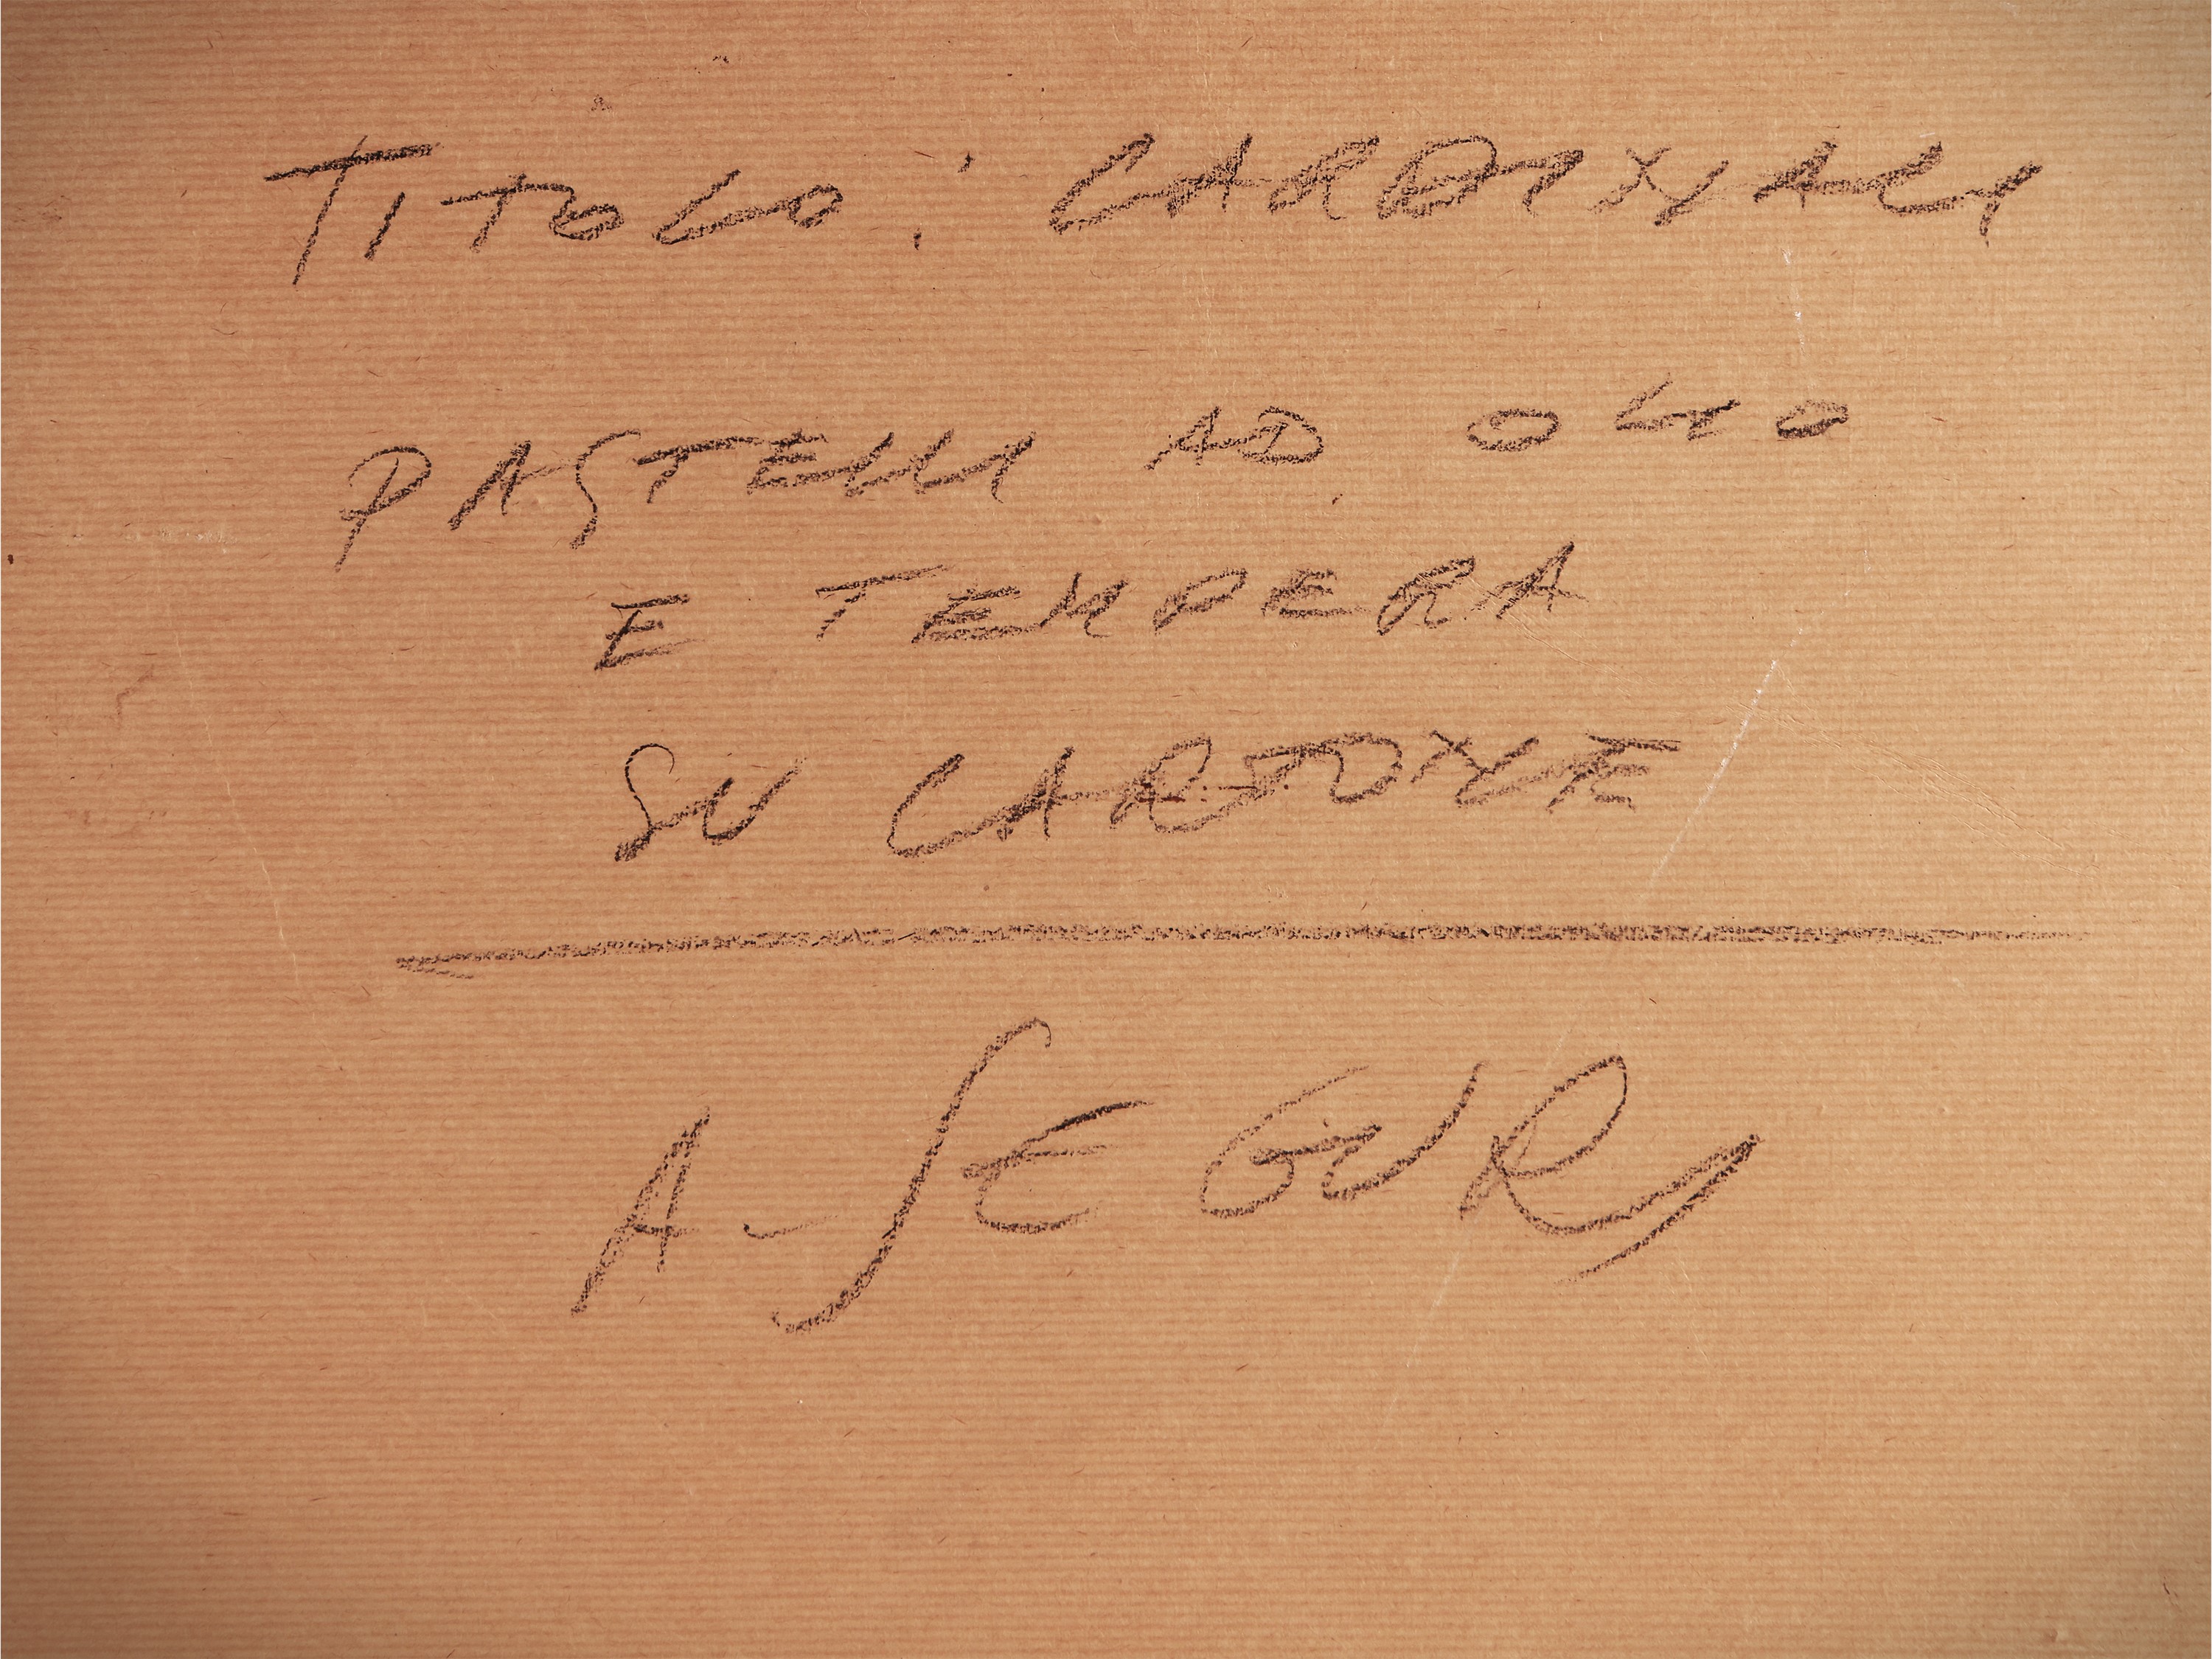 TITOLO: CARDINALI
PASTELLI AD OLIO
E TEMPERA
SU CARTONE
A. SEGUR